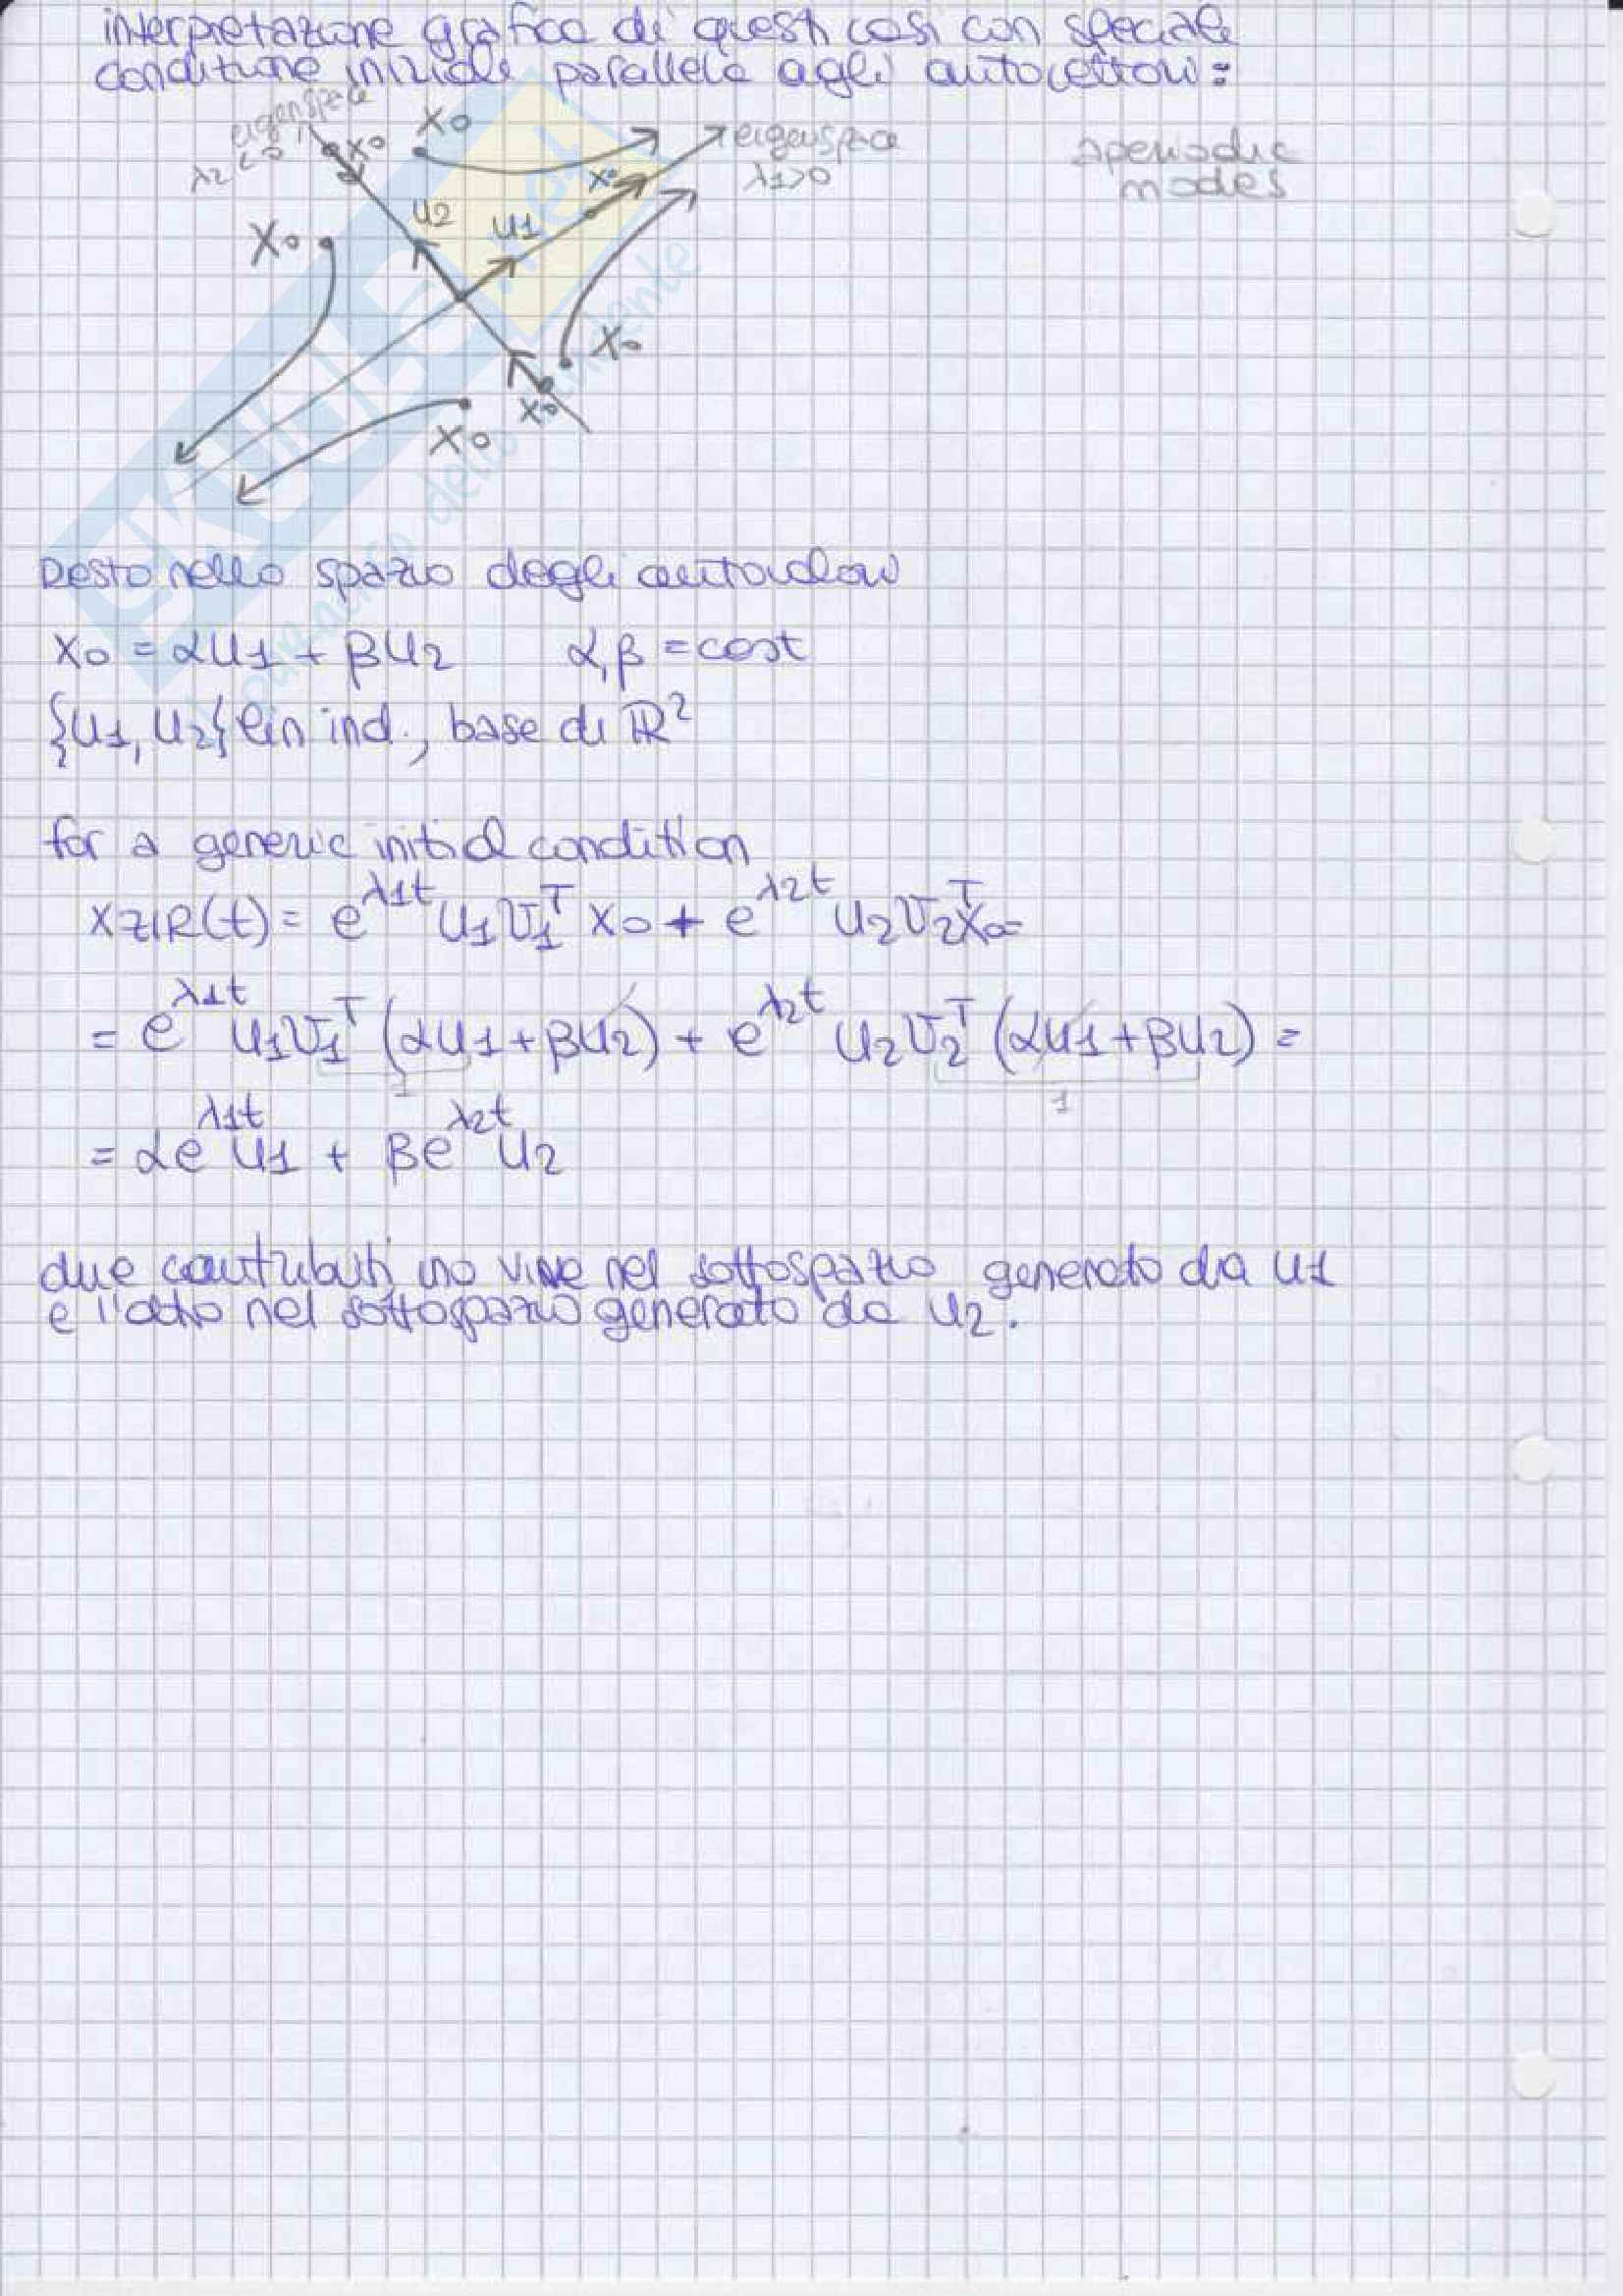 interpretazione grafica di questi casi con speciale
condizione iniziale parallela agli autovettori:
eigenspace
λ2<0
x0
x0
eigenspace
λ1>0
aperiodic
modes
x0
u2
u1
x0
x0
x0
x0
SKUOLA.net
resto nello spazio degli autovalori
x0 = αu1 + βu2 α,β = cost
{u1, u2} lin ind., base di ℝ²
for a generic initial condition
xZIR(t) = e^λ1t u1v1^T x0 + e^λ2t u2v2^T x0 =
= e^λ1t u1v1^T (αu1+βu2) + e^λ2t u2v2^T (αu1+βu2) =
1 1
= αe^λ1t u1 + βe^λ2t u2
due contributi, uno vive nel sottospazio generato da u1
e l'altro nel sottospazio generato da u2.